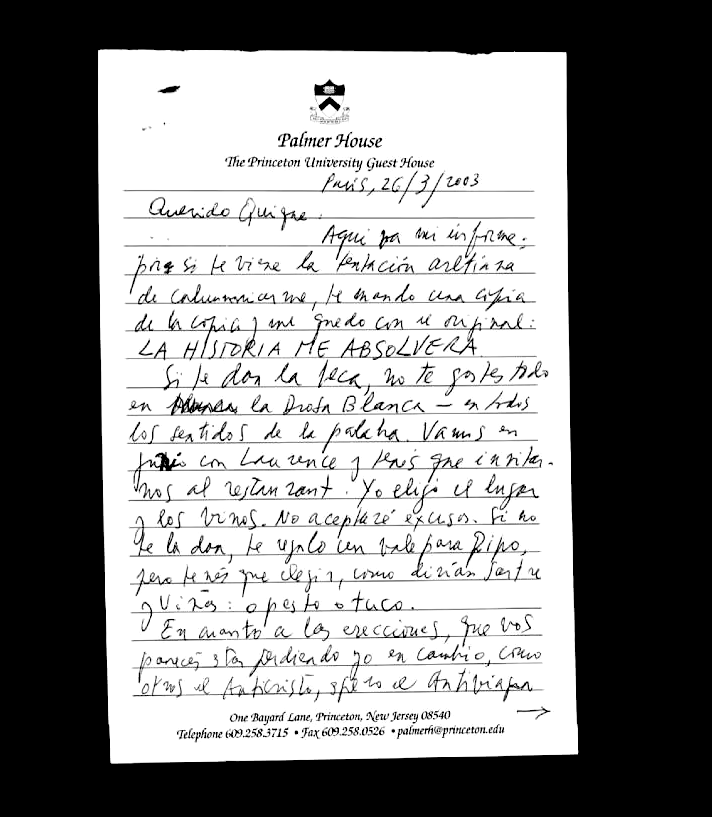 Palmer House
The Princeton University Guest House
París, 26/3/2003
Querido Quique:
Aquí va mi informe:
por si te viene la tentación
de calumniarme, te mando una copia
de la copia y me quedo con el original:
LA HISTORIA ME ABSOLVERA
Si te dan la beca, no te gastes todo
en la Diosa Blanca – en todos
los sentidos de la palabra. Vamos en
con Laurence y tenés que invitar-
nos al restaurant. Yo elijo el lugar
y los vinos. No aceptaré excusas. Si no
te la dan, te regalo un vale para Pipo,
pero tenés que elegir, como dirían Sartre
y Viñas: o pesto o tuco.
En cuanto a las erecciones, que vos
parecés estar perdiendo yo en cambio, como
otros el Anticristo, espero el Antiviagra
One Bayard Lane, Princeton, New Jersey 08540
Telephone 609.258.3715 • Fax 609.258.0526 • palmerh@princeton.edu